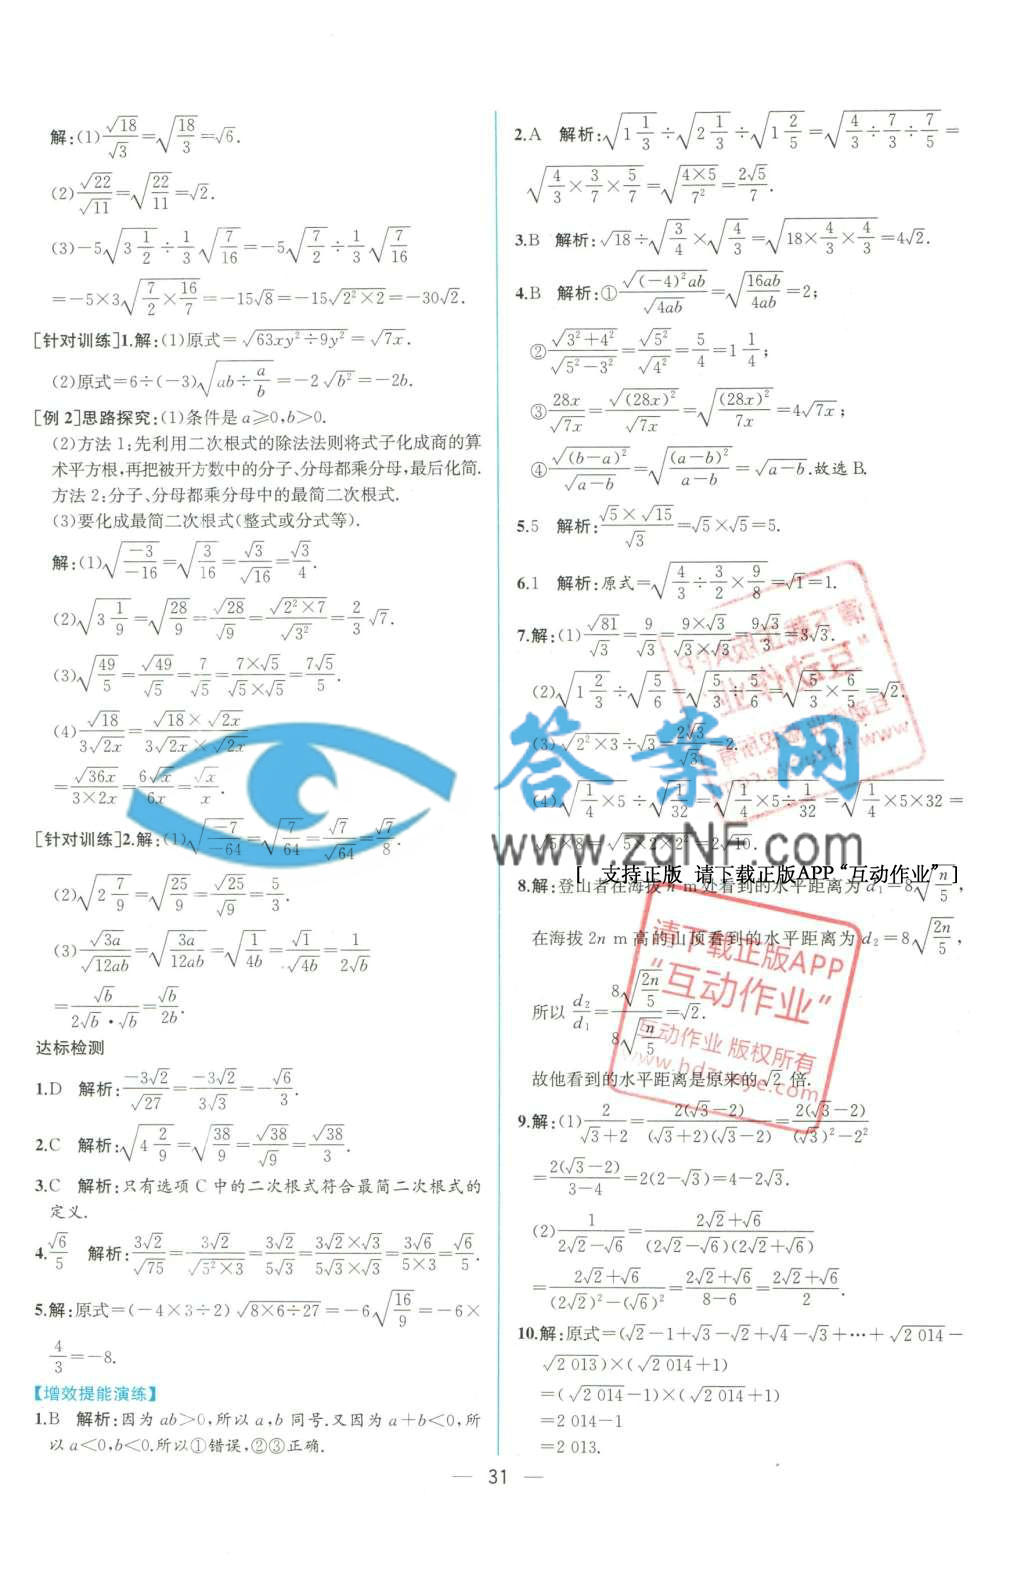 解:(1)√18/√3=√(18/3)=√6.
(2)√22/√11=√(22/11)=√2.
(3)-5√(3 1/2)÷1/3√(7/16)=-5√(7/2)÷1/3√(7/16)
=-5×3√(7/2×16/7)=-15√8=-15√(2²×2)=-30√2.
[针对训练]1.解:(1)原式=√(63xy²÷9y²)=√(7x).
(2)原式=6÷(-3)√(ab÷a/b)=-2√(b²)=-2b.
[例 2]思路探究:(1)条件是 a≥0,b>0.
(2)方法 1:先利用二次根式的除法法则将式子化成商的算
术平方根,再把被开方数中的分子、分母都乘分母,最后化简.
方法 2:分子、分母都乘分母中的最简二次根式.
(3)要化成最简二次根式(整式或分式等).
解:(1)√(-3/-16)=√(3/16)=√3/√16=√3/4.
(2)√(3 1/9)=√(28/9)=√28/√9=√(2²×7)/√(3²)=2/3√7.
(3)√(49/5)=√49/√5=7/√5=7×√5/(√5×√5)=7√5/5.
(4)√18/(3√(2x))=√18×√(2x)/(3√(2x)×√(2x))
=√(36x)/(3×2x)=6√x/(6x)=√x/x.
[针对训练]2.解:(1)√(-7/-64)=√(7/64)=√7/√64=√7/8.
(2)√(2 7/9)=√(25/9)=√25/√9=5/3.
(3)√(3a)/√(12ab)=√(3a/12ab)=√(1/4b)=√1/√(4b)=1/(2√b)
=√b/(2√b·√b)=√b/(2b).
达标检测
1.D 解析:-3√2/√27=-3√2/(3√3)=-√6/3.
2.C 解析:√(4 2/9)=√(38/9)=√38/√9=√38/3.
3.C 解析:只有选项 C 中的二次根式符合最简二次根式的
定义.
4.√6/5 解析:3√2/√75=3√2/√(5²×3)=3√2/(5√3)=3√2×√3/(5√3×√3)=3√6/(5×3)=√6/5.
5.解:原式=(-4×3÷2)√(8×6÷27)=-6√(16/9)=-6×
4/3=-8.
【增效提能演练】
1.B 解析:因为 ab>0,所以 a,b 同号.又因为 a+b<0,所
以 a<0,b<0.所以①错误,②③正确.
2.A 解析:√(1 1/3)÷√(2 1/3)÷√(1 2/5)=√(4/3÷7/3÷7/5)=
√(4/3×3/7×5/7)=√(4×5/7²)=2√5/7.
3.B 解析:√18÷√(3/4)×√(4/3)=√(18×4/3×4/3)=4√2.
4.B 解析:①√((-4)²ab)/√(4ab)=√(16ab/4ab)=2;
②√(3²+4²)/√(5²-3²)=√(5²)/√(4²)=5/4=1 1/4;
③28x/√(7x)=√((28x)²)/√(7x)=√((28x)²/7x)=4√(7x);
④√((b-a)²)/√(a-b)=√((a-b)²/(a-b))=√(a-b).故选 B.
5.5 解析:√5×√15/√3=√5×√5=5.
6.1 解析:原式=√(4/3÷3/2×9/8)=√1=1.
7.解:(1)√81/√3=9/√3=9×√3/(√3×√3)=9√3/3=3√3.
(2)√(1 2/3)÷√(5/6)=√(5/3÷5/6)=√(5/3×6/5)=√2.
(3)√(2²×3)÷√3=2√3/√3=2.
(4)√(1/4×5)÷√(1/32)=√(1/4×5÷1/32)=√(1/4×5×32)=
√(5×8)=√(5×2×2²)=2√10.
答案网
www.zqNF.com
[ 支持正版 请下载正版APP“互动作业” ]
8.解:登山者在海拔 n m 处看到的水平距离为 d₁=8√(n/5),
在海拔 2n m 高的山顶看到的水平距离为 d₂=8√(2n/5),
所以 d₂/d₁=8√(2n/5)/(8√(n/5))=√2.
故他看到的水平距离是原来的√2 倍.
请下载正版APP
“互动作业”
互动作业 版权所有
9.解:(1)2/(√3+2)=2(√3-2)/((√3+2)(√3-2))=2(√3-2)/((√3)²-2²)
=2(√3-2)/(3-4)=2(2-√3)=4-2√3.
(2)1/(2√2-√6)=(2√2+√6)/((2√2-√6)(2√2+√6))
=(2√2+√6)/((2√2)²-(√6)²)=(2√2+√6)/(8-6)=(2√2+√6)/2.
10.解:原式=(√2-1+√3-√2+√4-√3+…+√2 014-
√2 013)×(√2 014+1)
=(√2 014-1)×(√2 014+1)
=2 014-1
=2 013.
— 31 —